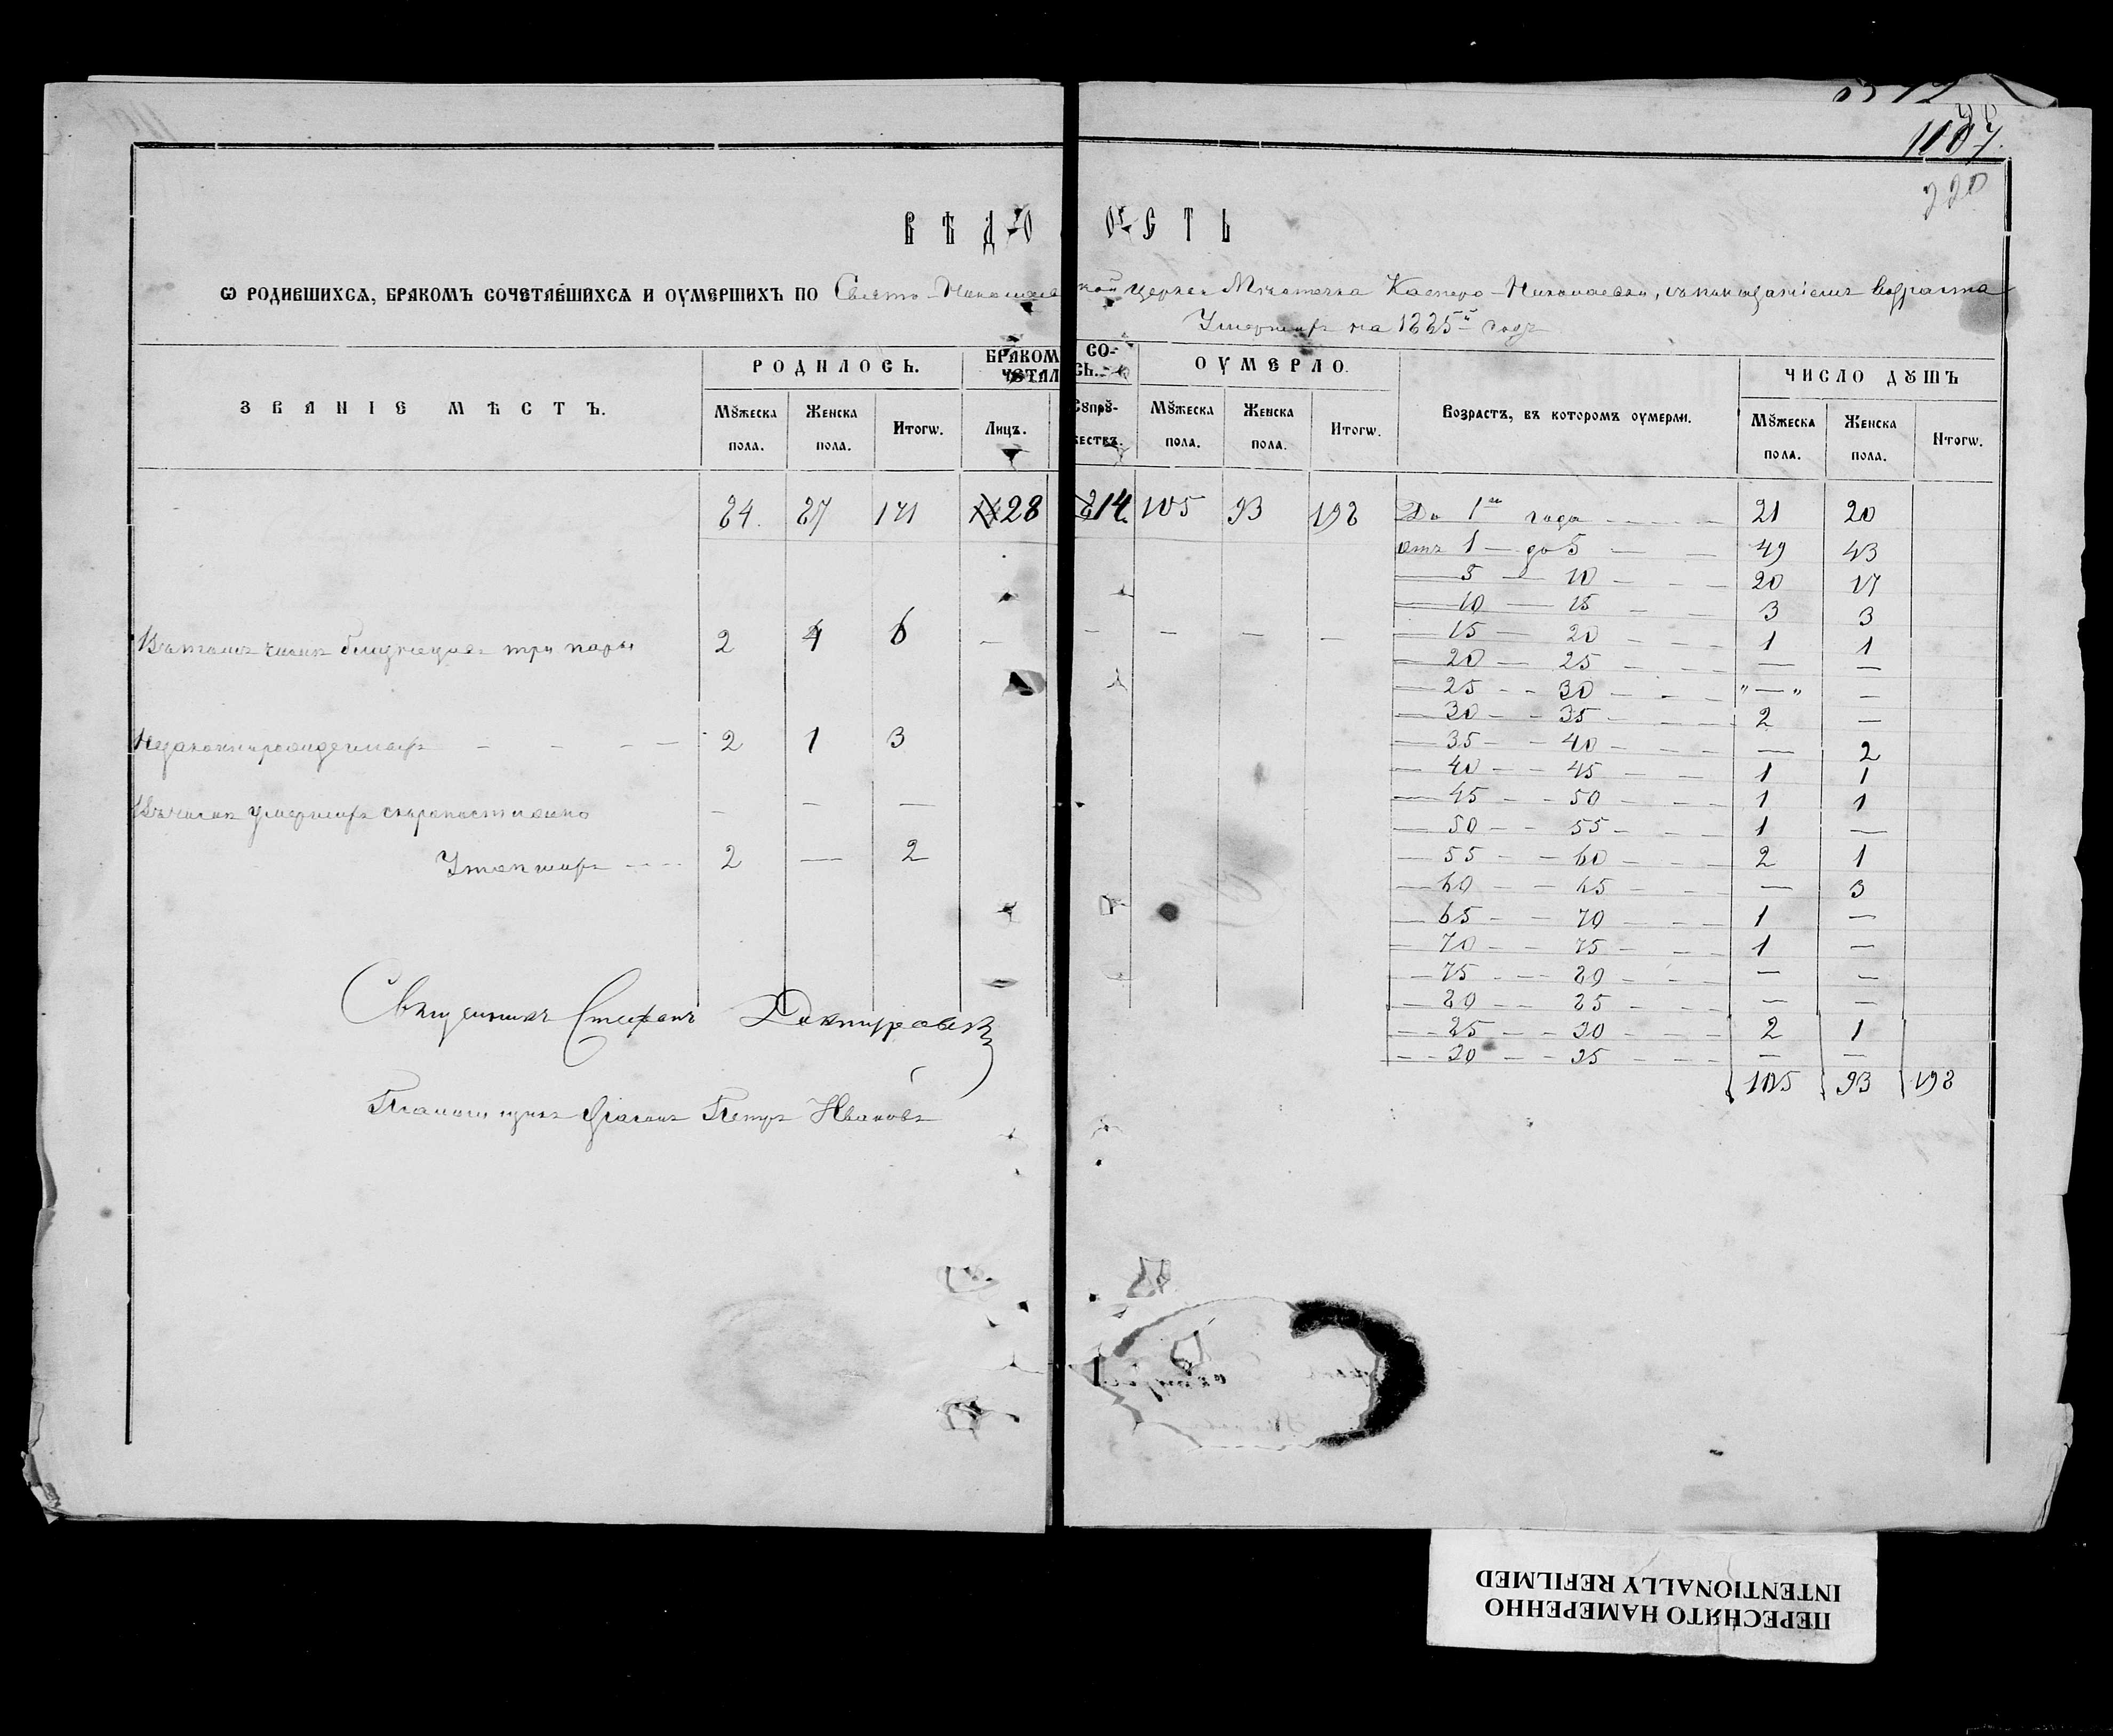 1107.
220
ВѢДОМОСТЬ
Ѡ РОДИВШИХСѦ, БРАКОМЪ СОЧЕТАВШИХСѦ И ОУМЕРШИХЪ ПО Свято-Николаевской церкви Мѣстечка Касперо-Николаевки, съ показаніемъ возраста
Умершихъ на 1885й годъ
ЗВАНІЕ МѢСТЪ.
РОДИЛОСЬ.
БРАКОМ СО-
ЧЕТАЛ СЬ.
ОУМЕРЛО.
Возрастъ, въ которомъ оумерли.
ЧИСЛО ДꙊШЪ
Мꙋжеска пола.
Женска пола.
Итогѡ.
Лицъ.
Сꙋпрꙋ-жествъ.
Мꙋжеска пола.
Женска пола.
Итогѡ.
Мꙋжеска пола.
Женска пола.
Итогѡ.
84. 87 171 28 14 105 93 198 До 1го года 21 20
отъ 1 — до 5 49 43
5 — 10 20 17
10 — 15 3 3
15 — 20 1 1
Въ томъ числѣ близнецовъ три пары 2 4 6 — — — — —
20 — 25 — —
25 — 30 „—„ —
30 — 35 2 —
Незаконнорожденныхъ 2 1 3
35 — 40 — 2
40 — 45 1 1
45 — 50 1 1
Въ числѣ умершихъ скоропостижно — — —
50 — 55 1 —
Утопшихъ 2 — 2
55 — 60 2 1
60 — 65 — 3
65 — 70 1 —
70 — 75 1 —
75 — 80 — —
80 — 85 — —
85 — 90 2 1
90 — 95 — —
105 93 198
Священникъ Стефанъ
Діаконъ Петръ Ивановъ
ПЕРЕСНЯТО НАМЕРЕННО
INTENTIONALLY REFILMED